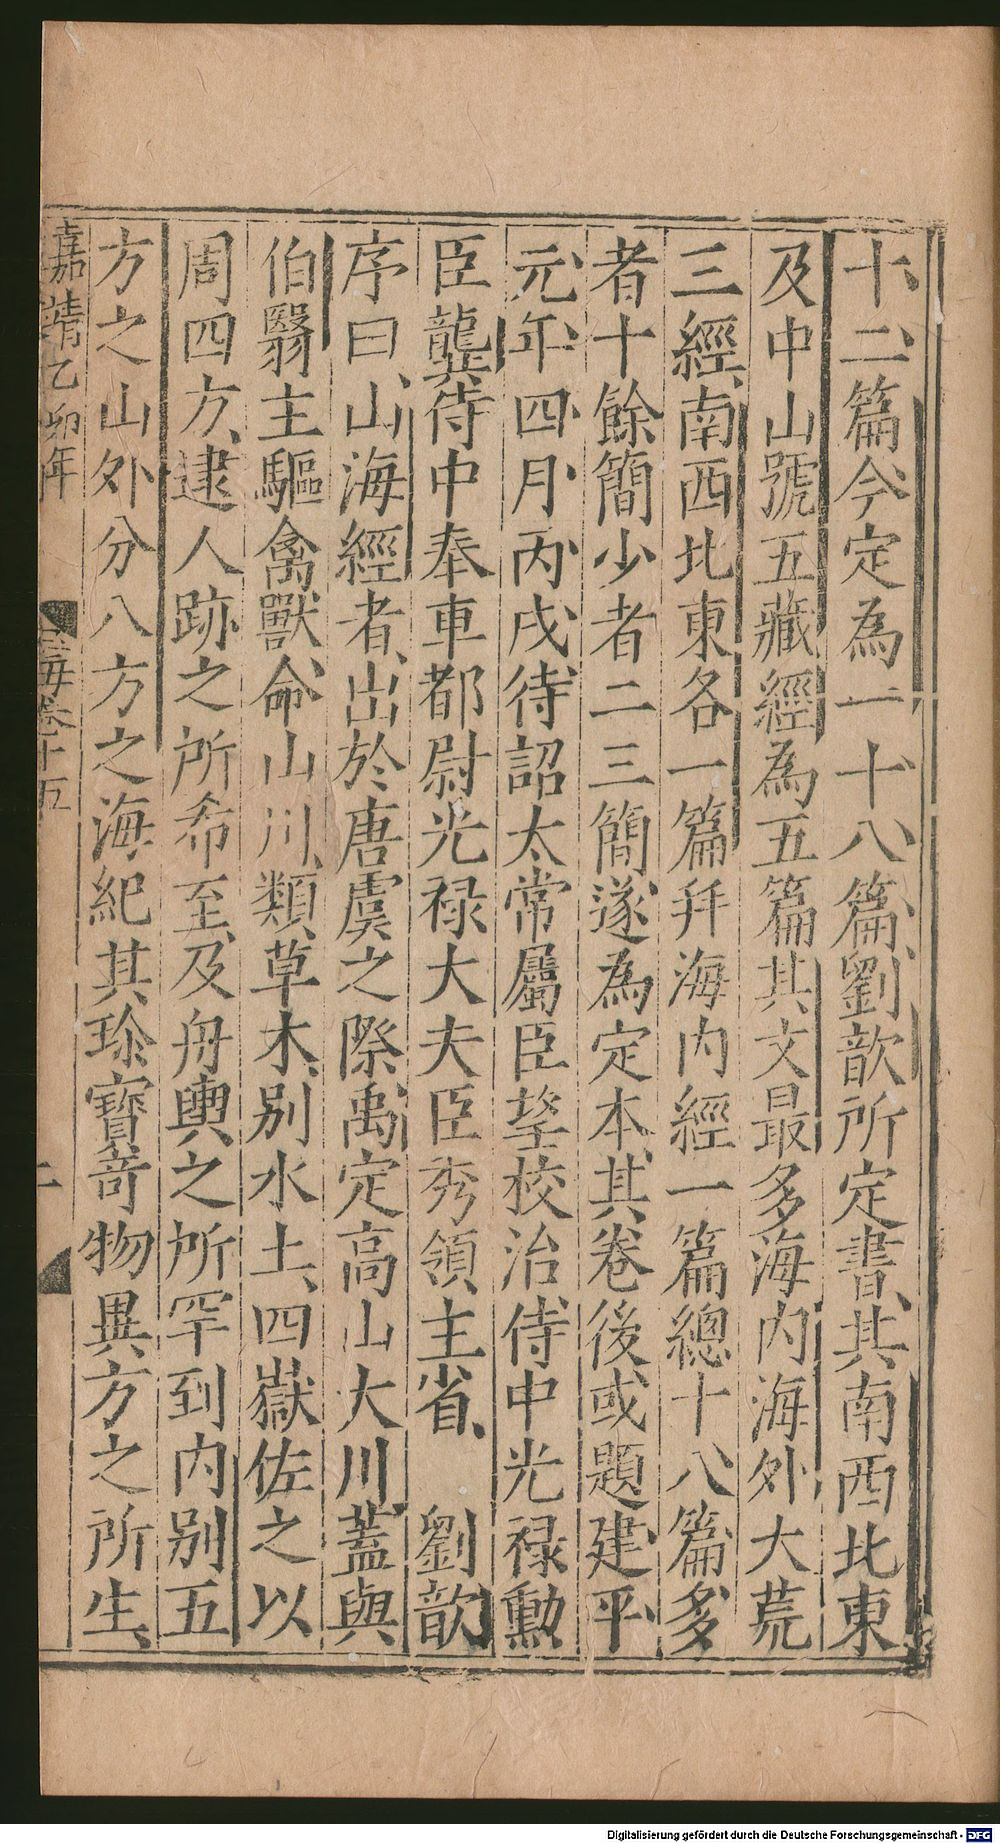 十、二篇、今定為一、十八、篇、劉歆所定書、其南西北東
及中山號五藏經為五篇其文最多海內海外大荒
三經、南西北東各一篇并海內經一篇總十八篇多
者十餘簡少者二三簡遂為定本、其卷後或題建平、
元年、四月丙戌、待詔太常屬臣望校治侍中光祿勳
臣龔侍中奉車都尉光祿大夫臣秀領主省、 劉歆
序曰、山海經者、出於唐虞之際、禹定高山大川、蓋與
伯翳主驅禽獸、命山川、類草木、別水土、四嶽佐之以
周四方、逮人跡之所希至、及舟輿之所罕到內別五
方之山外分八方之海、紀其珍寶竒物異方之所生、
嘉靖乙卯年
卷十五
Digitalisierung gefördert durch die Deutsche Forschungsgemeinschaft - DFG